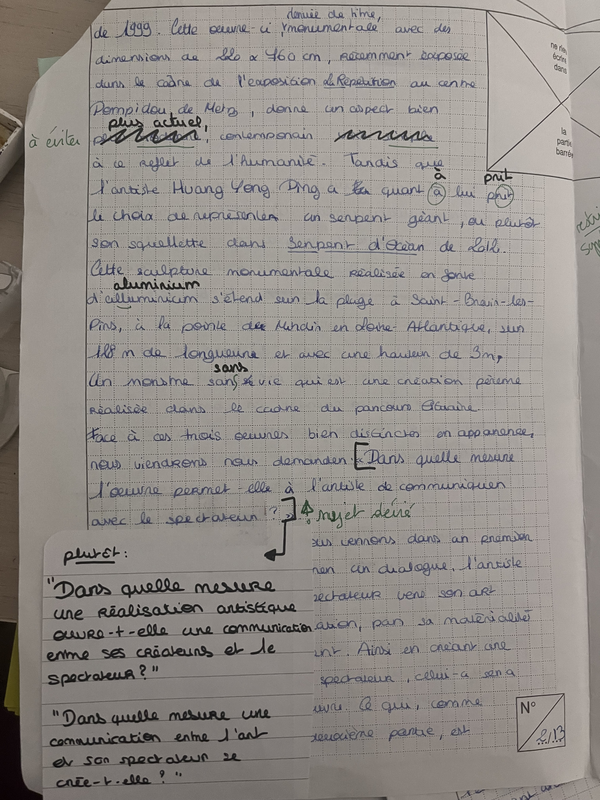 denuée de titre,
de 1999. Cette oeuvre-ci monumentale avec des
dimensions de 220 x 460 cm, récemment exposée
dans le cadre de l'exposition La Répétition au centre
Pompidou, de Metz, donne un aspect bien
plus actuel,
à éviter
contemporain
à ce reflet de l'Humanité. Tandis que
l'artiste Huang Yong Ping a quant à lui prit
à prit
le choix de représenter un serpent géant, ou plutôt
son squellette dans Serpent d'Océan de 2012.
Cette sculpture monumentale réalisée en fonte
aluminium
d'alluminium s'étend sur la plage à Saint-Brevin-les-
Pins, à la pointe de Mindin en Loire-Atlantique, sur
128 m de longueure et avec une hauteur de 3m,
sans
Un monstre sans vie qui est une création pérenne
réalisée dans le cadre du parcours Estuaire.
Face à ces trois oeuvres bien distinctes en apparence,
nous viendrons nous demander: « Dans quelle mesure
l'oeuvre permet-elle à l'artiste de communiquer
avec le spectateur ? »
! sujet dévié
plutôt:
"Dans quelle mesure
une réalisation artistique
ouvre-t-elle une communication
entre ses créateurs et le
spectateur ?"
"Dans quelle mesure une
communication entre l'art
et son spectateur se
crée-t-elle ?"
verrons dans un premier
un dialogue, l'artiste
vers son art
par sa matérialité
Ainsi en créant une
spectateur, celui-ci sera
Ce qui, comme
deuxième partie, est
ne rien
écrire
dans
la
partie
barrée
N°
2/13